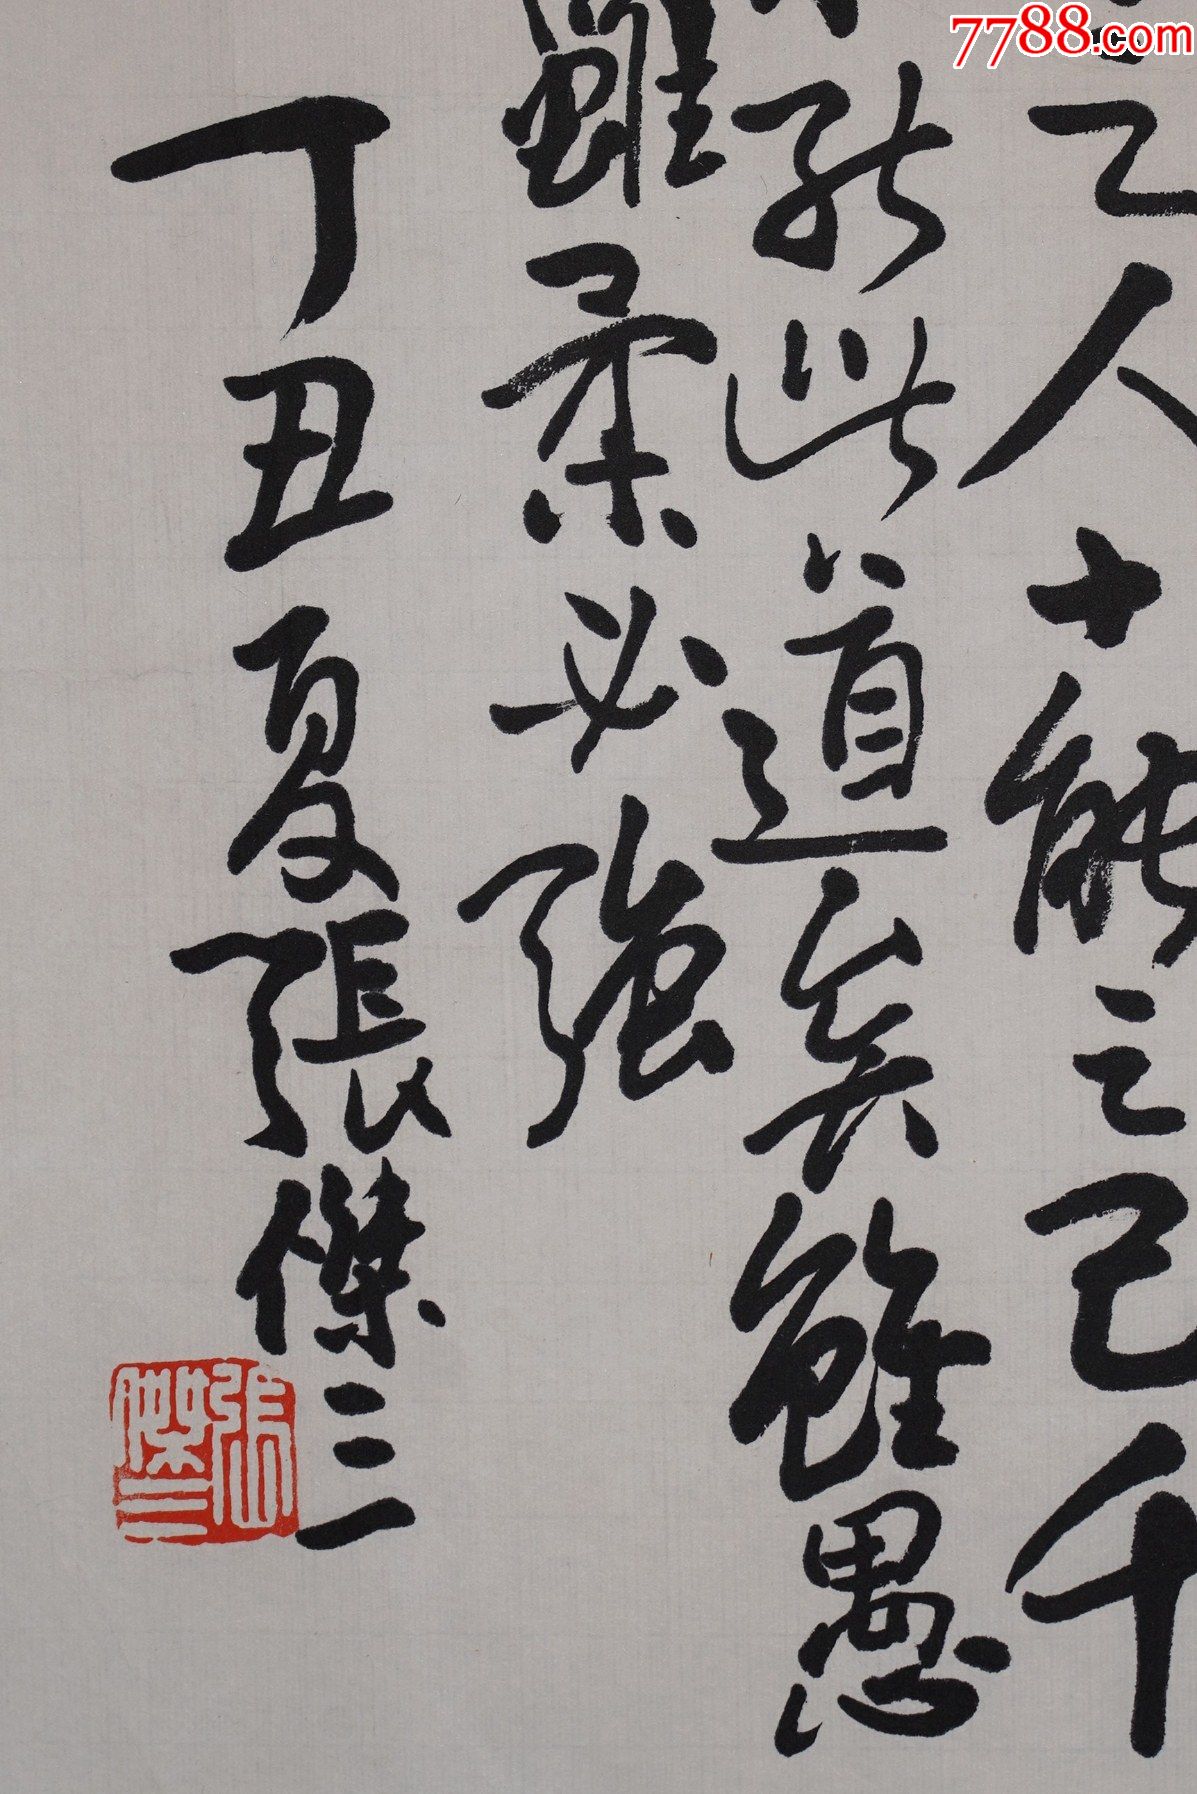 7788.com
之人十能之己千
能此道矣雖愚
雖柔必強
丁丑夏張傑三
張傑三